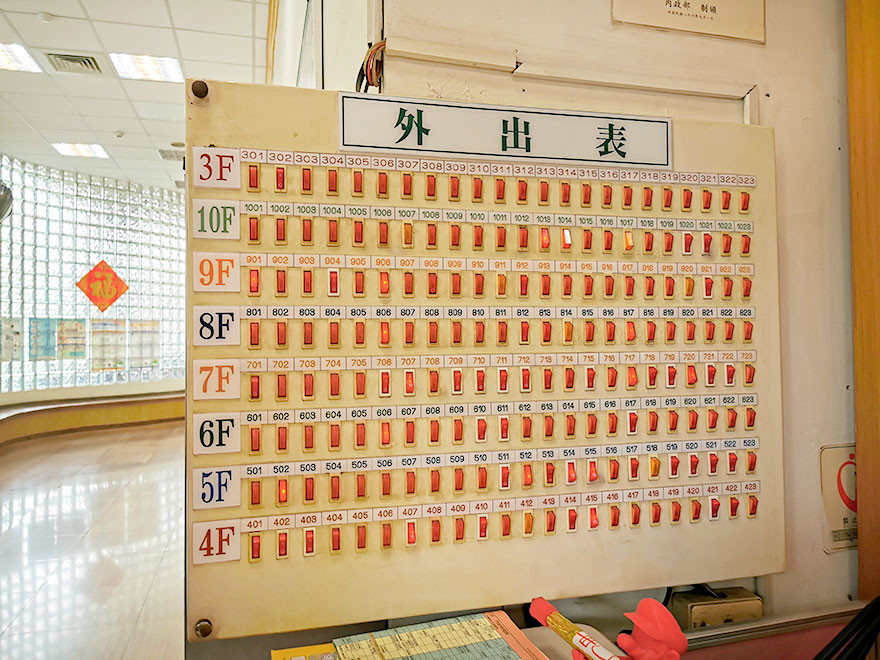 內政部 制頒
外出表
3F 301 302 303 304 305 306 307 308 309 310 311 312 313 314 315 316 317 318 319 320 321 322 323
10F 1001 1002 1003 1004 1005 1006 1007 1008 1009 1010 1011 1012 1013 1014 1015 1016 1017 1018 1019 1020 1021 1022 1023
9F 901 902 903 904 905 906 907 908 909 910 911 912 913 914 915 916 917 918 919 920 921 922 923
8F 801 802 803 804 805 806 807 808 809 810 811 812 813 814 815 816 817 818 819 820 821 822 823
7F 701 702 703 704 705 706 707 708 709 710 711 712 713 714 715 716 717 718 719 720 721 722 723
6F 601 602 603 604 605 606 607 608 609 610 611 612 613 614 615 616 617 618 619 620 621 622 623
5F 501 502 503 504 505 506 507 508 509 510 511 512 513 514 515 516 517 518 519 520 521 522 523
4F 401 402 403 404 405 406 407 408 409 410 411 412 413 414 415 416 417 418 419 420 421 422 423
福